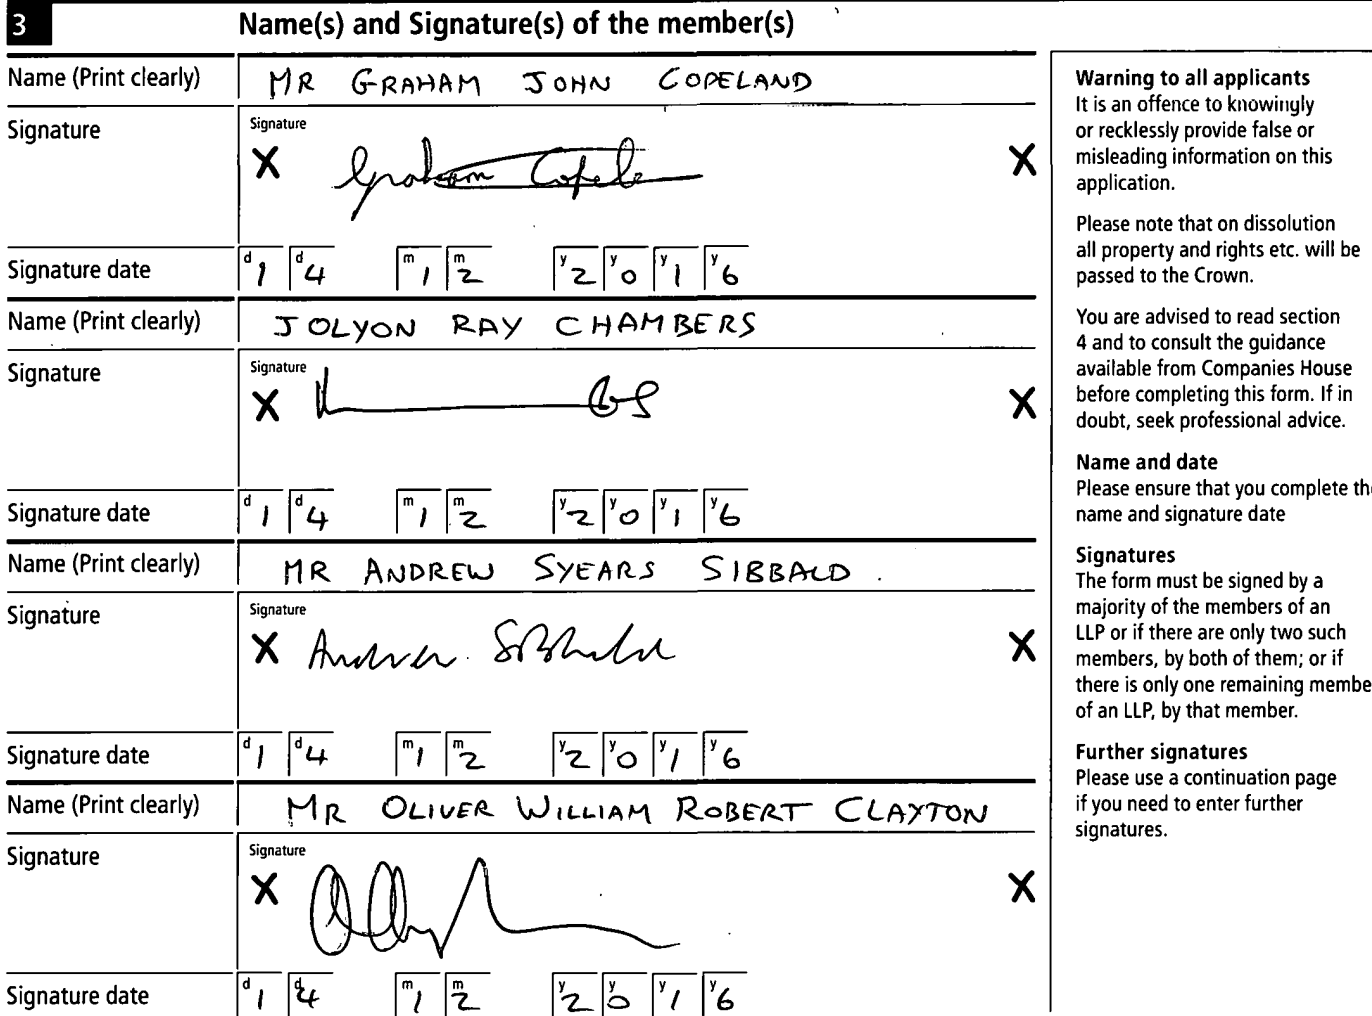 3 Name(s) and Signature(s) of the member(s)
Name (Print clearly) MR GRAHAM JOHN COPELAND
Signature
Signature
X Graham Copeland X
Signature date d1 d4 m1 m2 y2 y0 y1 y6
Name (Print clearly) JOLYON RAY CHAMBERS
Signature
Signature
X X
Signature date d1 d4 m1 m2 y2 y0 y1 y6
Name (Print clearly) MR ANDREW SYEARS SIBBALD.
Signature
Signature
X Andrew Sibbald X
Signature date d1 d4 m1 m2 y2 y0 y1 y6
Name (Print clearly) MR OLIVER WILLIAM ROBERT CLAYTON
Signature
Signature
X X
Signature date d1 d4 m1 m2 y2 y0 y1 y6
Warning to all applicants
It is an offence to knowingly
or recklessly provide false or
misleading information on this
application.
Please note that on dissolution
all property and rights etc. will be
passed to the Crown.
You are advised to read section
4 and to consult the guidance
available from Companies House
before completing this form. If in
doubt, seek professional advice.
Name and date
Please ensure that you complete the
name and signature date
Signatures
The form must be signed by a
majority of the members of an
LLP or if there are only two such
members, by both of them; or if
there is only one remaining membe
of an LLP, by that member.
Further signatures
Please use a continuation page
if you need to enter further
signatures.